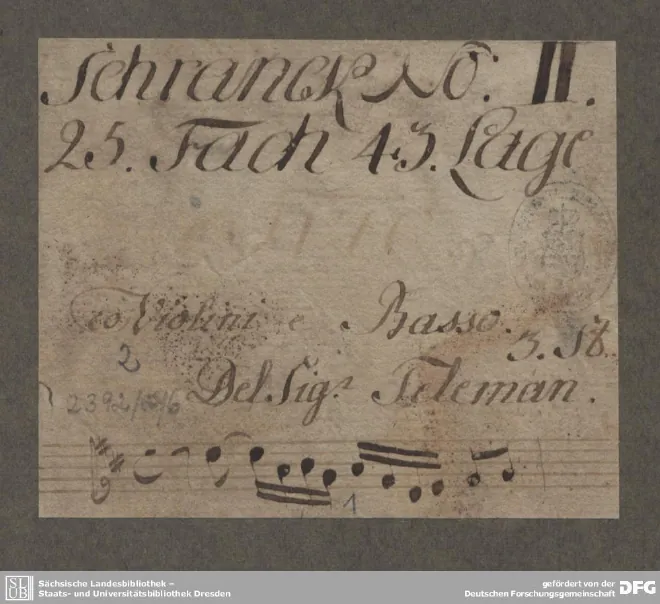 Schranck No: II.
25. Fach 43. Lage
Violini e Basso.
3. St.
2
Del Sig.r Teleman.
2392/
1
SLUB
Sächsische Landesbibliothek –
Staats- und Universitätsbibliothek Dresden
gefördert von der
Deutschen Forschungsgemeinschaft
DFG